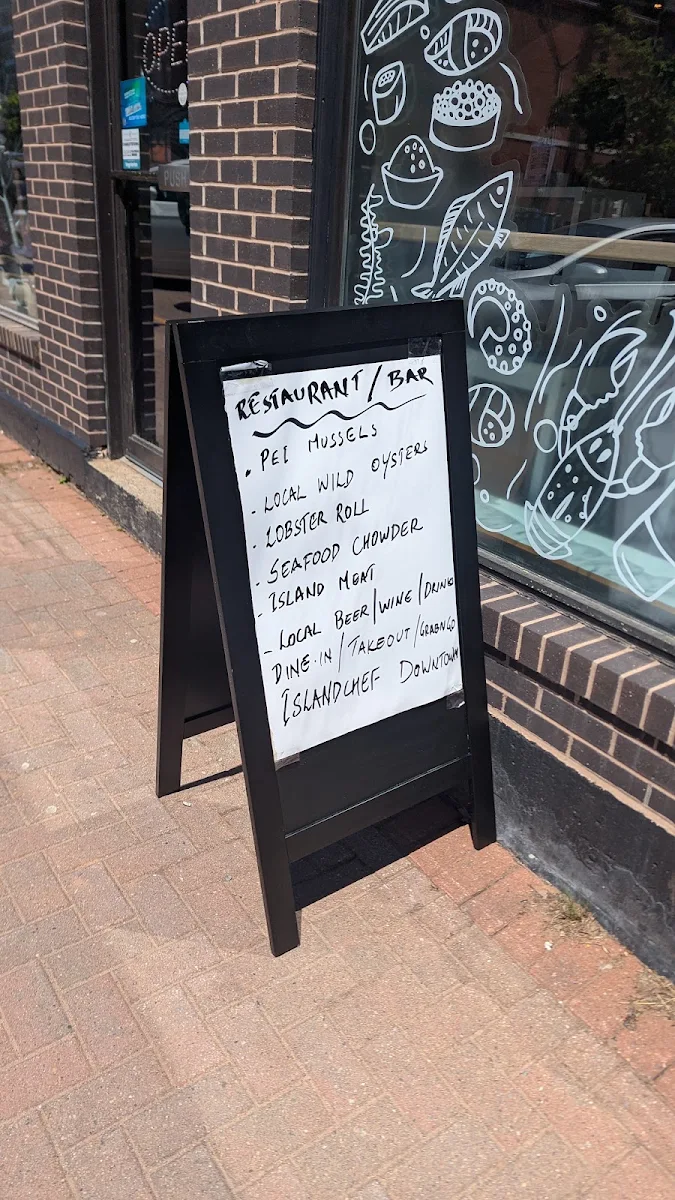 OPE
PUSH
RESTAURANT / BAR
. PEI MUSSELS
- LOCAL WILD OYSTERS
- LOBSTER ROLL
- SEAFOOD CHOWDER
- ISLAND MEAT
- LOCAL BEER/WINE/DRINKS
DINE-IN/TAKEOUT/GRABNGO
ISLANDCHEF DOWNTOWN